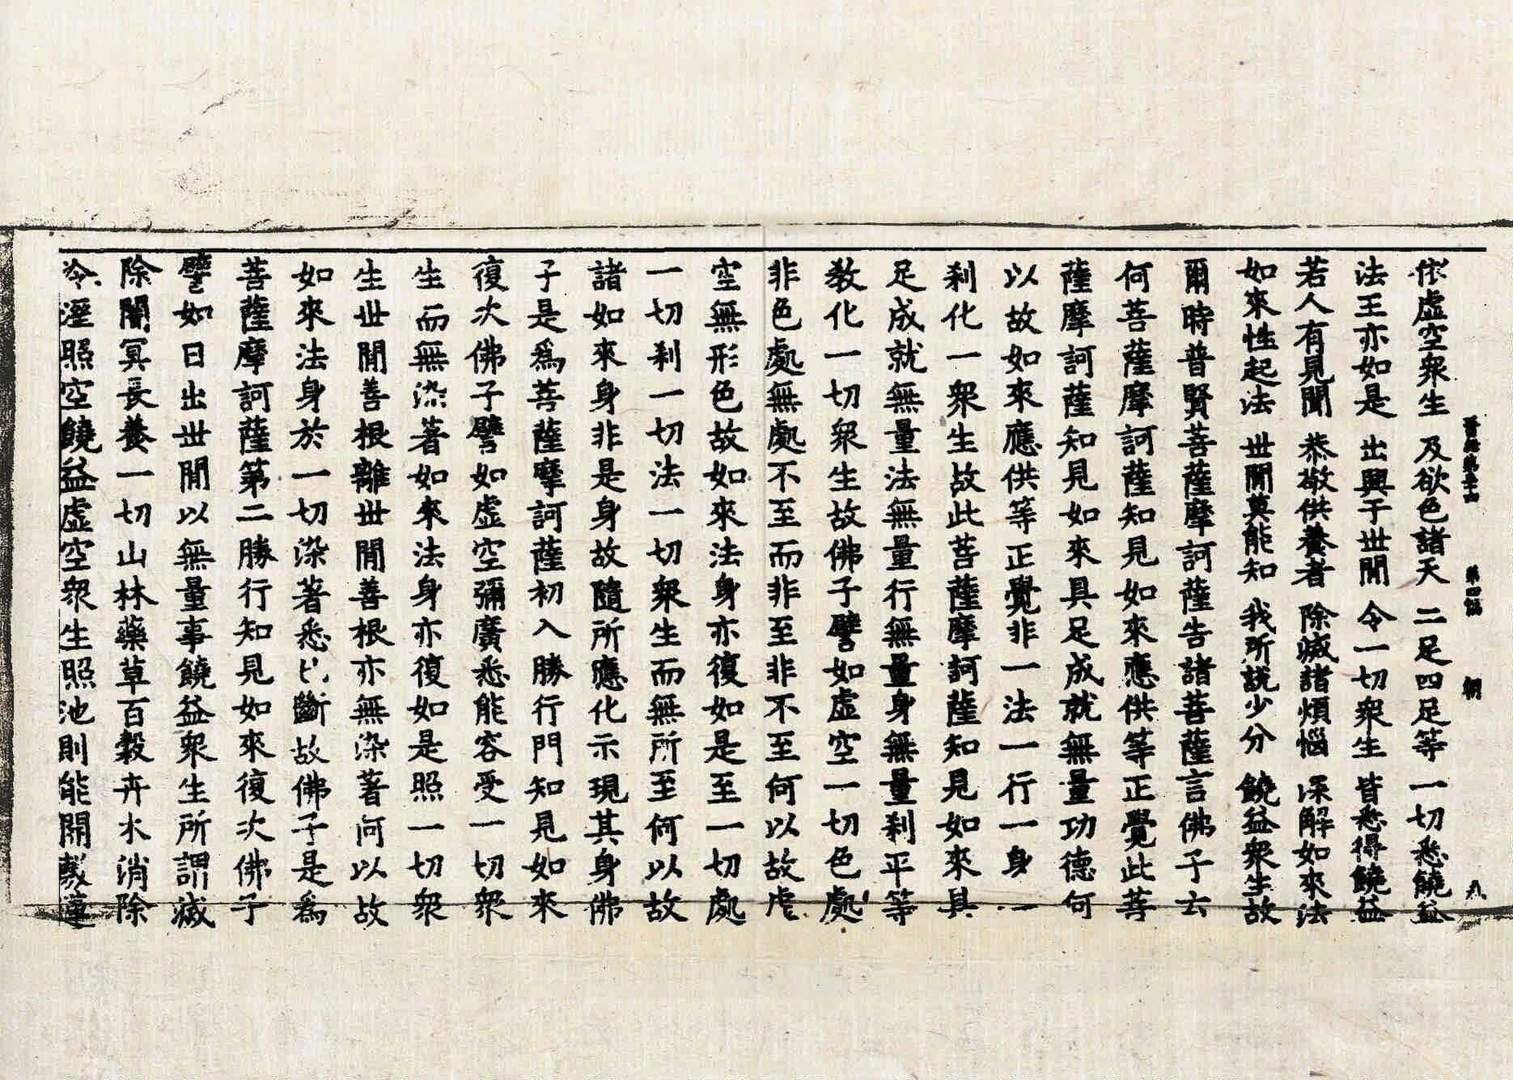 晉經卷三十四 第四張 朝 八
依虛空衆生 及欲色諸天 二足四足等 一切悉饒益
法王亦如是 出興于世閒 令一切衆生 皆悉得饒益
若人有見聞 恭敬供養者 除滅諸煩惱 深解如來法
如來性起法 世閒莫能知 我所說少分 饒益衆生故
爾時普賢菩薩摩訶薩告諸菩薩言佛子云
何菩薩摩訶薩知見如來應供等正覺此菩
薩摩訶薩知見如來具足成就無量功德何
以故如來應供等正覺非一法一行一身一
刹化一衆生故此菩薩摩訶薩知見如來具
足成就無量法無量行無量身無量刹平等
教化一切衆生故佛子譬如虛空一切色處
非色處無處不至而非至非不至何以故虛
空無形色故如來法身亦復如是至一切處
一切刹一切法一切衆生而無所至何以故
諸如來身非是身故隨所應化示現其身佛
子是爲菩薩摩訶薩初入勝行門知見如來
復次佛子譬如虛空彌廣悉能容受一切衆
生而無染著如來法身亦復如是照一切衆
生世閒善根離世閒善根亦無染著何以故
如來法身於一切染著悉已斷故佛子是爲
菩薩摩訶薩第二勝行知見如來復次佛子
譬如日出世閒以無量事饒益衆生所謂滅
除闇冥長養一切山林藥草百穀卉木消除
冷溼照空饒益虛空衆生照池則能開敷蓮